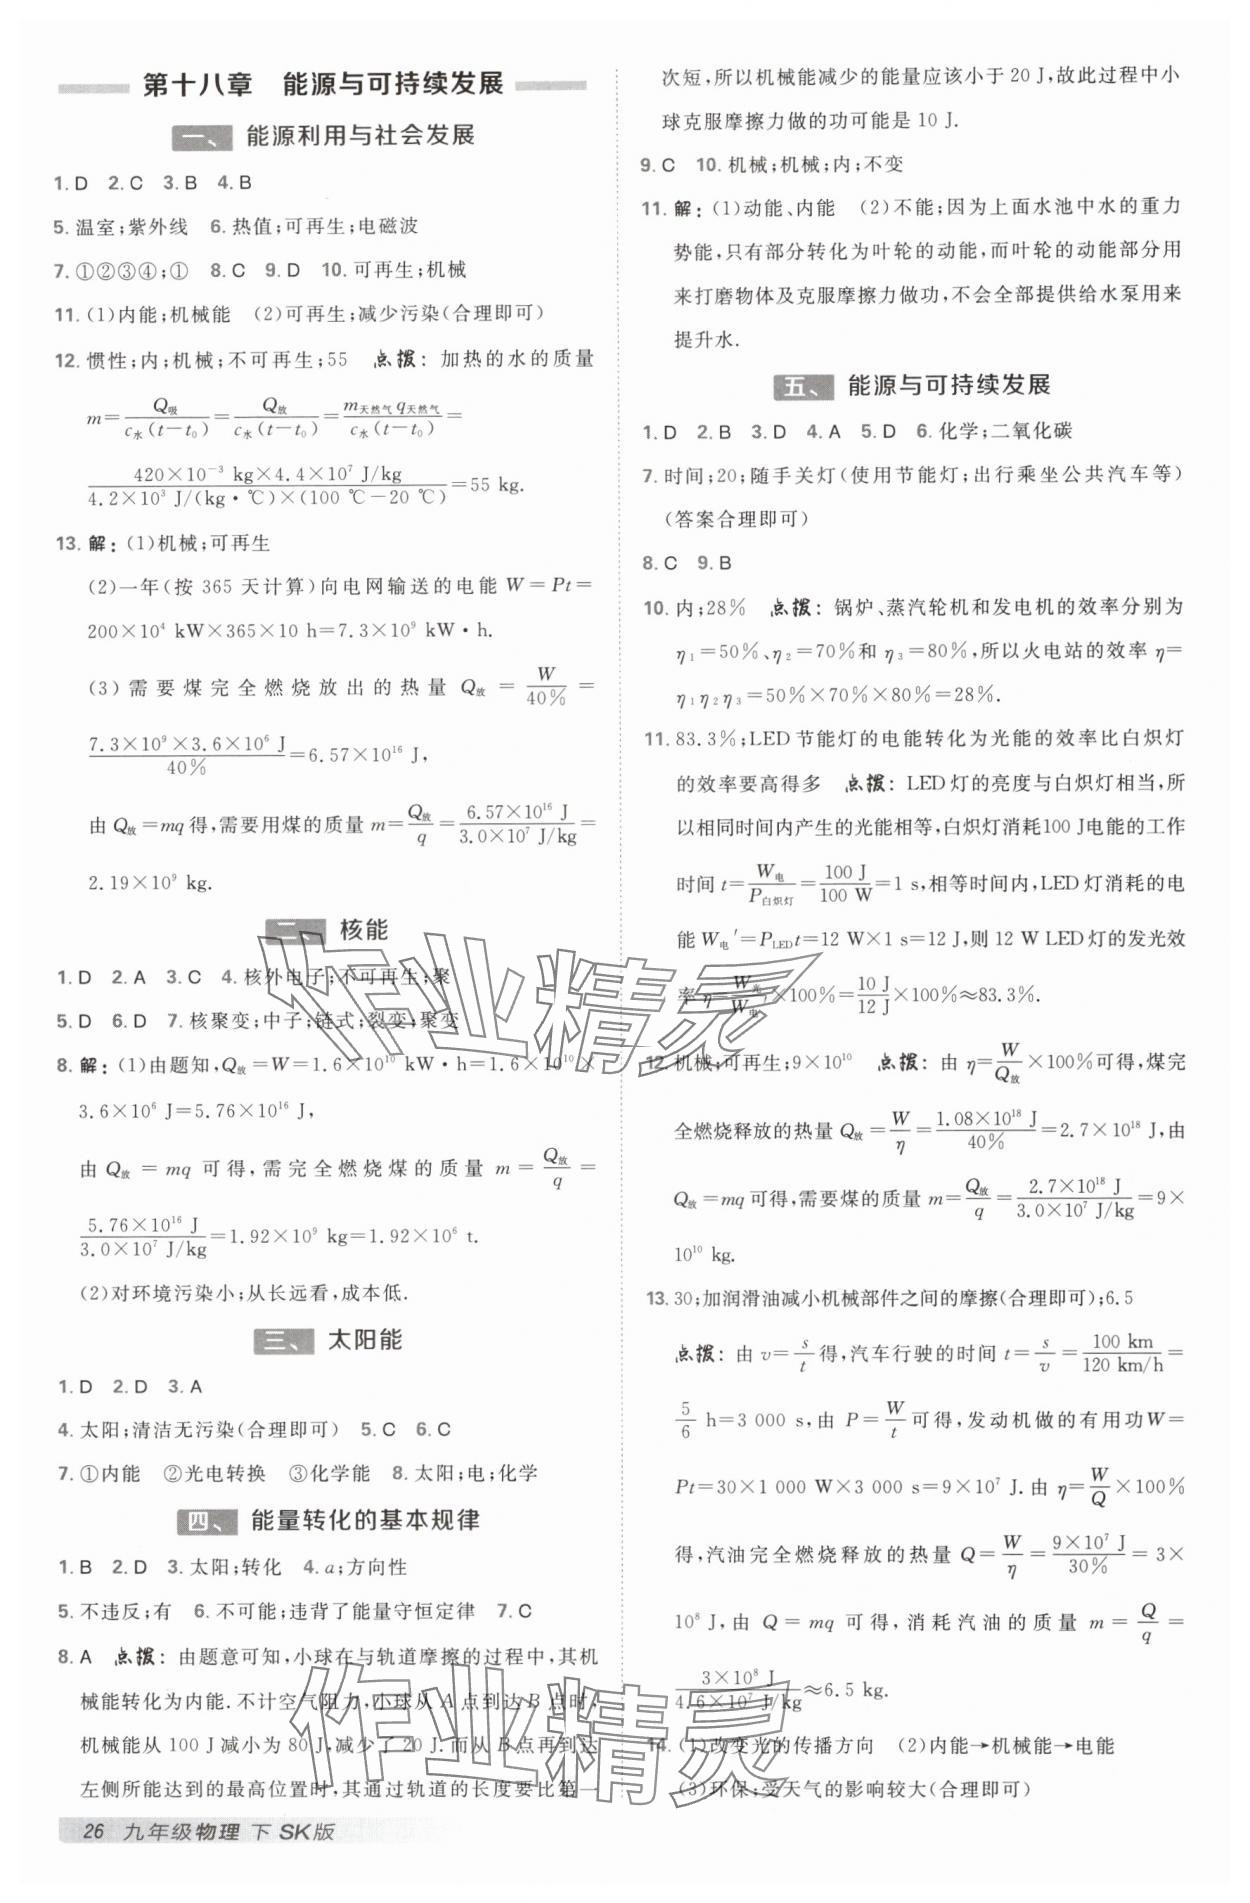 第十八章 能源与可持续发展
一、 能源利用与社会发展
1. D 2. C 3. B 4. B
5. 温室;紫外线 6. 热值;可再生;电磁波
7. ①②③④;① 8. C 9. D 10. 可再生;机械
11. (1)内能;机械能 (2)可再生;减少污染(合理即可)
12. 惯性;内;机械;不可再生;55 点拨: 加热的水的质量
m=Q吸/c水(t-t₀)=Q放/c水(t-t₀)=m天然气q天然气/c水(t-t₀)=
420×10⁻³ kg×4.4×10⁷ J/kg/4.2×10³ J/(kg·℃)×(100 ℃-20 ℃)=55 kg.
13. 解: (1)机械;可再生
(2)一年(按 365 天计算)向电网输送的电能 W=Pt=
200×10⁴ kW×365×10 h=7.3×10⁹ kW·h.
(3)需要煤完全燃烧放出的热量 Q放=W/40%=
7.3×10⁹×3.6×10⁶ J/40%=6.57×10¹⁶ J,
由 Q放=mq得,需要用煤的质量 m=Q放/q=6.57×10¹⁶ J/3.0×10⁷ J/kg=
2.19×10⁹ kg.
二、 核能
1. D 2. A 3. C 4. 核外电子;不可再生;聚
5. D 6. D 7. 核聚变;中子;链式;裂变;聚变
8. 解: (1)由题知,Q放=W=1.6×10¹⁰ kW·h=1.6×10¹⁰×
3.6×10⁶ J=5.76×10¹⁶ J,
由 Q放=mq 可得,需完全燃烧煤的质量 m=Q放/q=
5.76×10¹⁶ J/3.0×10⁷ J/kg=1.92×10⁹ kg=1.92×10⁶ t.
(2)对环境污染小;从长远看,成本低.
三、 太阳能
1. D 2. D 3. A
4. 太阳;清洁无污染(合理即可) 5. C 6. C
7. ①内能 ②光电转换 ③化学能 8. 太阳;电;化学
四、 能量转化的基本规律
1. B 2. D 3. 太阳;转化 4. a;方向性
5. 不违反;有 6. 不可能;违背了能量守恒定律 7. C
8. A 点拨: 由题意可知,小球在与轨道摩擦的过程中,其机
械能转化为内能.不计空气阻力,小球从 A 点到达 B 点时,
机械能从 100 J 减小为 80 J,减少了 20 J.而从 B 点再到达
左侧所能达到的最高位置时,其通过轨道的长度要比第一
26 九年级物理 下 SK版
次短,所以机械能减少的能量应该小于 20 J,故此过程中小
球克服摩擦力做的功可能是 10 J.
9. C 10. 机械;机械;内;不变
11. 解: (1)动能、内能 (2)不能;因为上面水池中水的重力
势能,只有部分转化为叶轮的动能,而叶轮的动能部分用
来打磨物体及克服摩擦力做功,不会全部提供给水泵用来
提升水.
五、 能源与可持续发展
1. D 2. B 3. D 4. A 5. D 6. 化学;二氧化碳
7. 时间;20;随手关灯(使用节能灯;出行乘坐公共汽车等)
(答案合理即可)
8. C 9. B
10. 内;28% 点拨: 锅炉、蒸汽轮机和发电机的效率分别为
η₁=50%、η₂=70%和 η₃=80%,所以火电站的效率 η=
η₁η₂η₃=50%×70%×80%=28%.
11. 83.3%;LED 节能灯的电能转化为光能的效率比白炽灯
的效率要高得多 点拨: LED 灯的亮度与白炽灯相当,所
以相同时间内产生的光能相等,白炽灯消耗100 J电能的工作
时间 t=W电/P白炽灯=100 J/100 W=1 s,相等时间内,LED 灯消耗的电
能 W电′=PLEDt=12 W×1 s=12 J,则 12 W LED 灯的发光效
率 η=W光/W电′×100%=10 J/12 J×100%≈83.3%.
12. 机械;可再生;9×10¹⁰ 点拨: 由 η=W/Q放×100%可得,煤完
全燃烧释放的热量 Q放=W/η=1.08×10¹⁸ J/40%=2.7×10¹⁸ J,由
Q放=mq可得,需要煤的质量 m=Q放/q=2.7×10¹⁸ J/3.0×10⁷ J/kg=9×
10¹⁰ kg.
13. 30;加润滑油减小机械部件之间的摩擦(合理即可);6.5
点拨: 由 v=s/t得,汽车行驶的时间 t=s/v=100 km/120 km/h=
5/6 h=3 000 s,由 P=W/t可得,发动机做的有用功W=
Pt=30×1 000 W×3 000 s=9×10⁷ J.由 η=W/Q×100%
得,汽油完全燃烧释放的热量 Q=W/η=9×10⁷ J/30%=3×
10⁸ J,由 Q=mq 可得,消耗汽油的质量 m=Q/q=
3×10⁸ J/4.6×10⁷ J/kg≈6.5 kg.
14. (1)改变光的传播方向 (2)内能→机械能→电能
(3)环保;受天气的影响较大(合理即可)
作业精灵
作业精灵